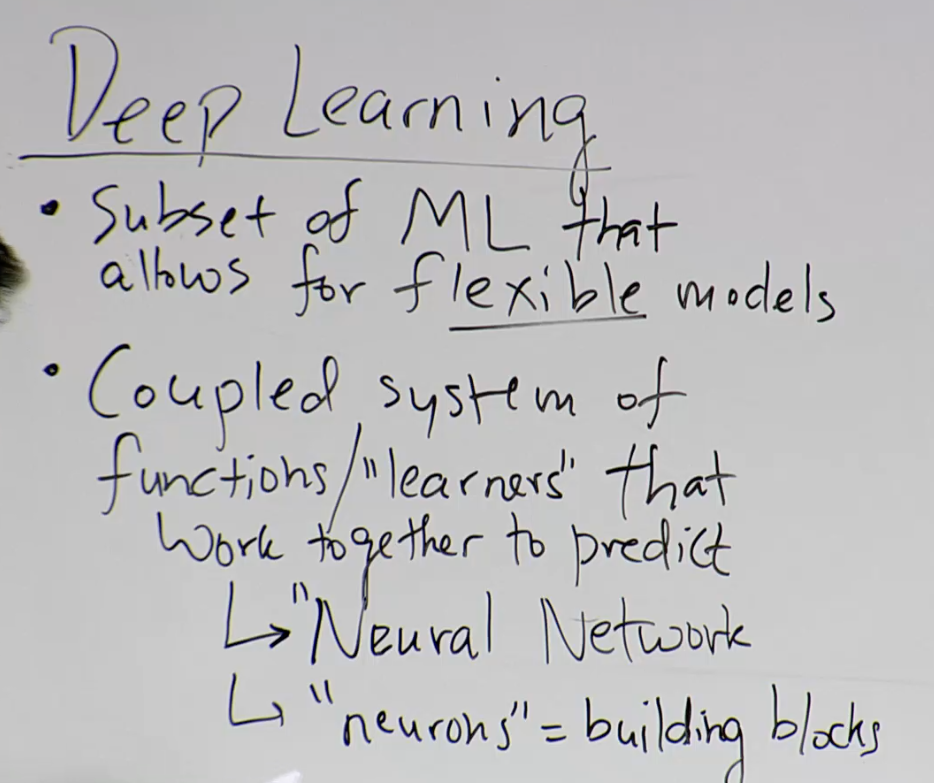 Deep Learning
• Subset of ML that
allows for flexible models
• Coupled system of
functions/"learners" that
work together to predict
↳ "Neural Network
↳ "neurons" = building blocks